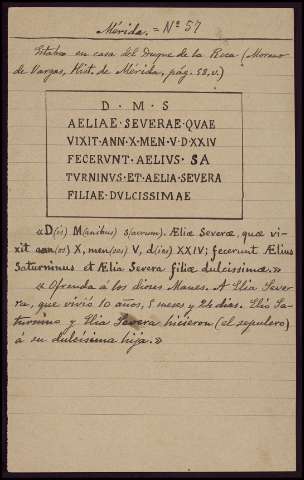 Mérida. = Nº 57
Estaba en casa del Duque de la Roca (Moreno
de Vargas, Hist. de Mérida, pág. 58.v.)
D · M · S
AELIAE · SEVERAE · QVAE
VIXIT · ANN · X · MEN · V · D · XXIV
FECERVNT · AELIVS · SA
TVRNINVS · ET · AELIA · SEVERA
FILIAE · DVLCISSIMAE
«D(is) M(anibus) s(acrum). Æliæ Severæ, quæ vi-
xit ann(os) X, men(ses) V, d(ies) XXIV; fecerunt Ælius
Saturninus et Ælia Severa filiæ dulcissimæ.»
«Ofrenda á los dioses Manes. A Elia Seve-
ra, que vivió 10 años, 5 meses y 24 dias. Elio Sa-
turnino y Elia Severa hicieron (el sepulcro)
á su dulcísima hija.»